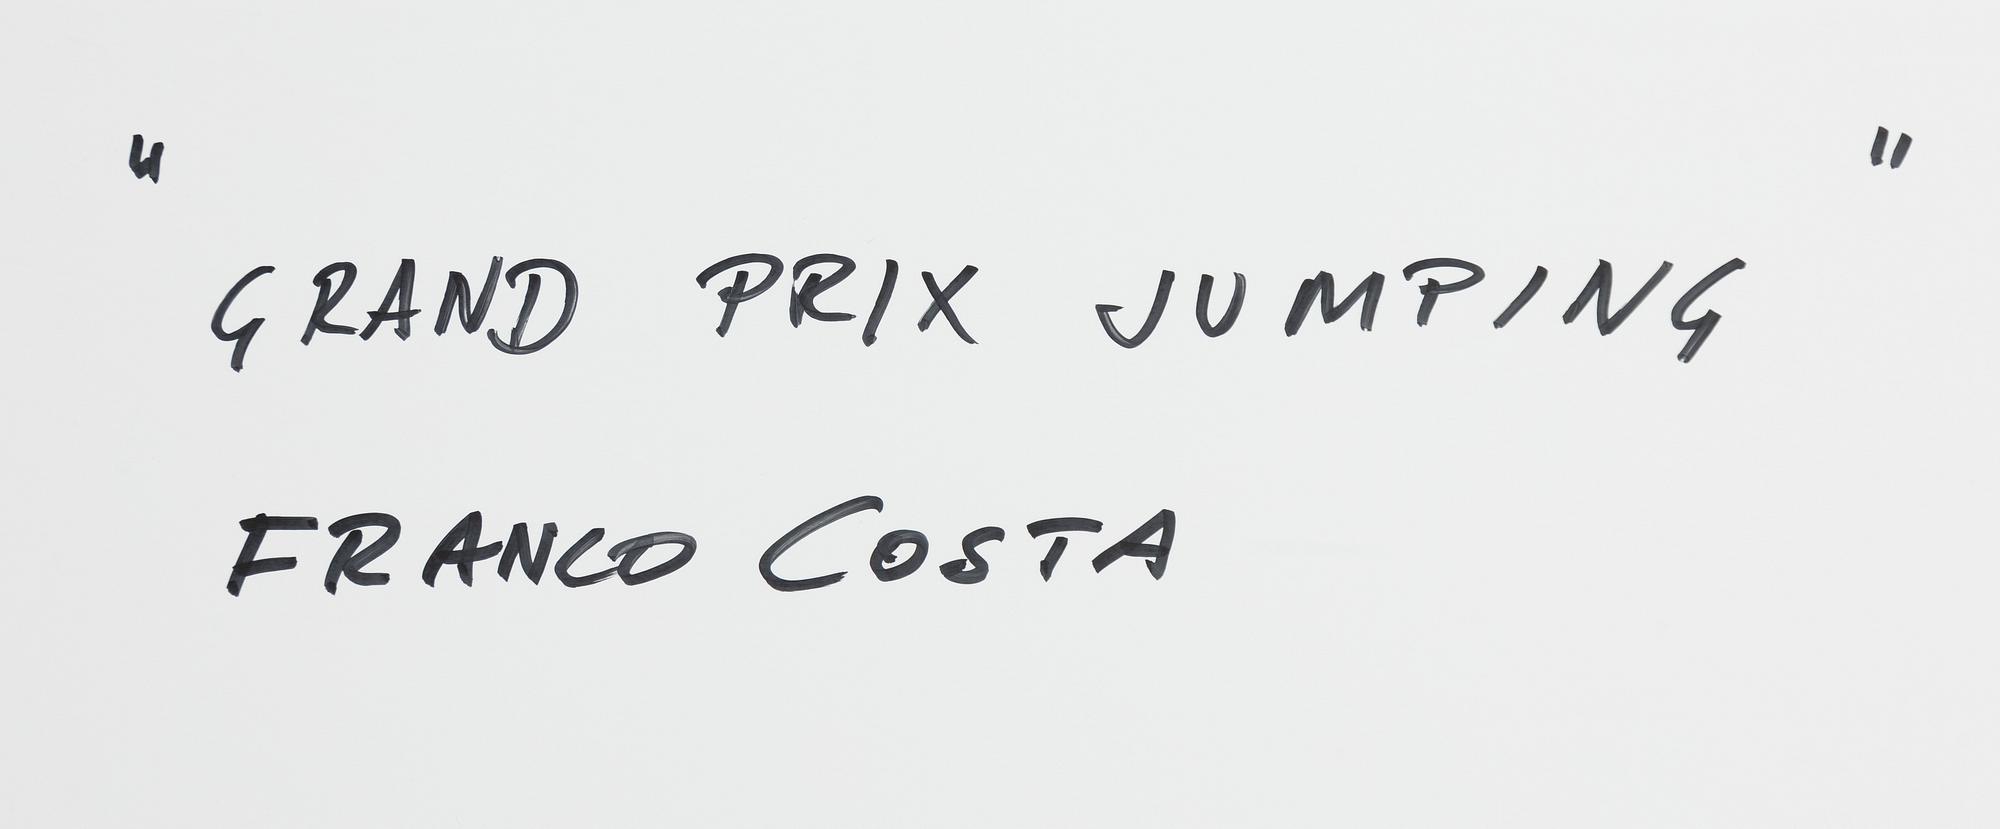 "GRAND PRIX JUMPING"
FRANCO COSTA